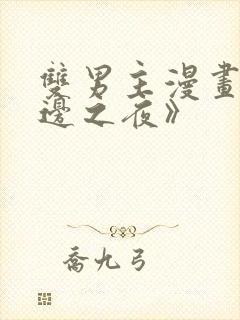 雙男主漫畫
邊之夜》
喬九弓